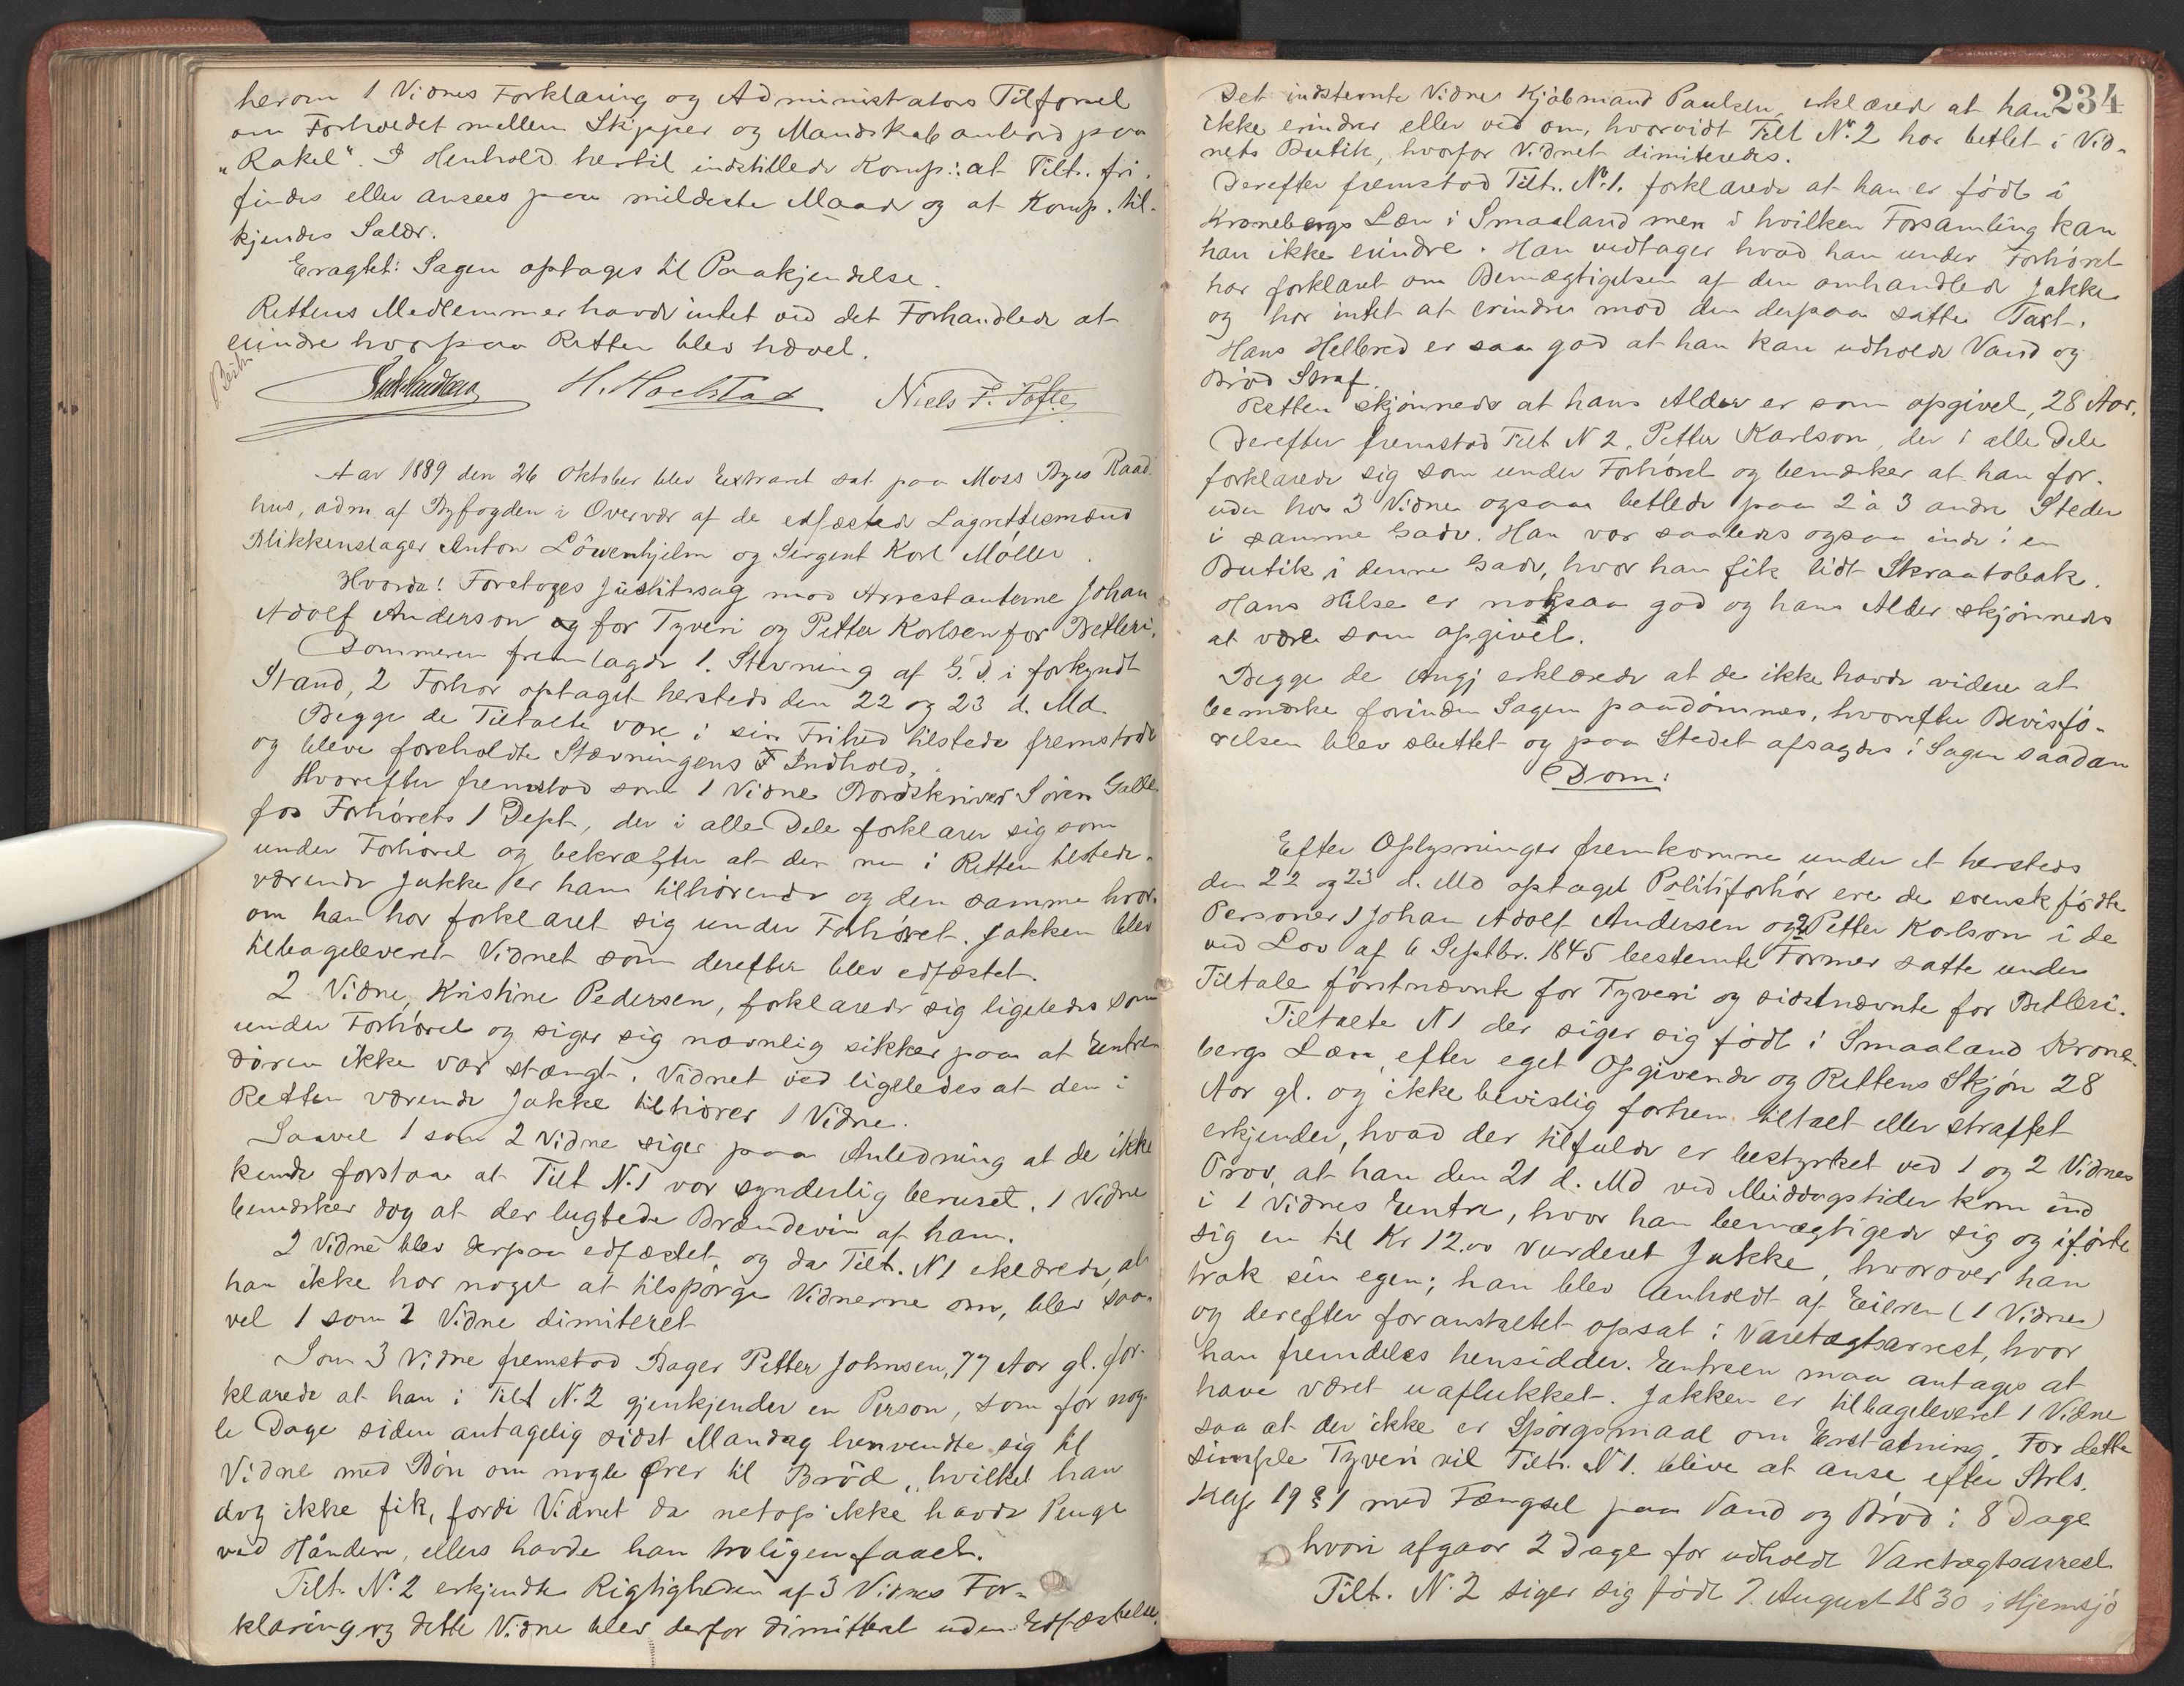 herom 1 Vidnes Forklaring og Administrators Tilførsel
om Forholdet mellem Skipper og Mandskab ombord paa
„Rakel“. I Henhold hertil indstillede Komp: at Tilt. fri-
findes eller ansees paa mildeste Maade og at Komp. til-
kjendes Salær.
Eragtet: Sagen optages til Paakjendelse.
Rettens Medlemmer havde intet ved det Forhandlede at
erindre hvorpaa Retten blev hævet.
H. Hoelstad Niels F. Tofte
Aar 1889 den 26 Oktober blev Extraret sat paa Moss Byes Raad-
hus, adm. af Byfogden i Overvær af de edfæstede Lagrettesmænd
Blikkenslager Anton Löwenhjelm og Sergent Karl Møller.
Hvorda: Foretoges Justitssag mod Arrestanterne Johan
Adolf Anderson og for Tyveri og Petter Karlsen for Betleri.
Dommeren fremlagde 1. Stevning af G. D. i forkyndt
Stand, 2 Forhør optaget hersteds den 22 og 23 d. Md.
Begge de Tiltalte vare i sin Frihed tilstede fremstode
og bleve foreholdte Stævningens Indhold.
Hvorefter fremstod som 1 Vidne Bordskriver Søren Galle
fos Forhørets 1 Dept, der i alle Dele forklarer sig som
under Forhøret og bekræfter at den nu i Retten tilstede-
værende Jakke er ham tilhørende og den samme hvor-
om han har forklaret sig under Forhøret. Jakken blev
tilbageleveret Vidnet som derefter blev edfæstet.
2 Vidne, Kristine Pedersen, forklarede sig ligeledes som
under Forhøret og siger sig navnlig sikker paa at Entre-
døren ikke var stængt. Vidnet ved ligeledes at den i
Retten værende Jakke tilhører 1 Vidne.
Saavel 1 som 2 Vidne siger paa Anledning at de ikke
kunde forstaa at Tilt N. 1 var synderlig beruset. 1 Vidne
bemærker dog at der lugtede Brændevin af ham.
2 Vidne blev derpaa edfæstet og da Tilt. N 1 erklærede, at
han ikke har noget at tilspørge Vidnerne om, blev saa-
vel 1 som 2 Vidne dimiteret
Som 3 Vidne fremstod Bager Petter Johnsen, 77 Aar gl. for-
klarede at han i Tilt N. 2 gjenkjender en Person, som for nog-
le Dage siden antagelig sidst Mandag henvendte sig til
Vidnet med Bøn om nogle Ører til Brød, hvilket han
dog ikke fik, fordi Vidnet da netop ikke havde Penge
ved Hånden, ellers havde han troligen faaet.
Tilt. N. 2 erkjendte Rigtigheden af 3 Vidnes For-
klaring og dette Vidne blev derfor dimitteret uden Edfæstelse.
234
Det indstevnte Vidne Kjøbmand Paulsen erklærede at han
ikke erindrer eller ved om, hvorvidt Tilt N. 2 har betlet i Vid-
nets Butik, hvorfor Vidnet dimiteredes.
Derefter fremstod Tilt. N. 1. forklarede at han er født i
Kronebergs Læn i Smaaland men i hvilken Forsamling kan
han ikke erindre. Han vedtager hvad han under Forhøret
har forklaret om Bemægtigelsen af den omhandlede Jakke
og har intet at erindre mod den derpaa satte Taxt.
Hans Helbred er saa god at han kan udholde Vand og
Brød Straf.
Retten skjønnede at hans Alder er som opgivet, 28 Aar.
Derefter fremstod Tilt N 2, Petter Karlson, der i alle Dele
forklarede sig som under Forhøret og bemærker at han for-
uden hos 3 Vidne ogsaa betlede paa 2 à 3 andre Steder
i samme Gade. Han var saaledes ogsaa inde i en
Butik i denne Gade, hvor han fik lidt Skraatobak.
Hans Helse er nogsaa god og hans Alder skjønnedes
at være som opgivet.
Begge de Angj erklærede at de ikke havde videre at
bemærke forinden Sagen paadømmes, hvorefter Bevisfø-
relsen blev sluttet og paa Stedet afsagdes i Sagen saadan
Dom:
Efter Oplysninger fremkomne under et hersteds
den 22 og 23 d. Md optaget Politiforhør ere de svensk fødte
Personer 1 Johan Adolf Andersen og 2 Petter Karlson i de
ved Lov af 6 Septbr. 1845 bestemte Former satte under
Tiltale førstnævnte for Tyveri og sidstnævnte for Betleri.
Tiltalte N 1 der siger sig født i Smaaland Krone-
bergs Læn, efter eget Opgivende og Rettens Skjøn 28
Aar gl. og ikke bevislig forhen tiltalt eller straffet
erkjender, hvad der tilfulde er bestyrket ved 1 og 2 Vidnes
Prov, at han den 21 d. Md ved Middagstider kom ind
i 1 Vidnes Entre, hvor han bemægtigede sig og iførte
sig en til Kr 12.00 vurderet Jakke, hvorover han
trak sin egen; han blev anholdt af Eieren (1 Vidne)
og derefter foranstaltet opsat i Varetægtsarrest, hvor
han fremdeles hensidder. Entreen maa antages at
have været uaflukket. Jakken er tilbageleveret 1 Vidne
saa at der ikke er Spørgsmaal om Erstatning. For dette
simple Tyveri vil Tilt. N 1. blive at anse efter Strls.
Kap 19 § 1 med Fængsel paa Vand og Brød i 8 Dage
hvori afgaar 2 Dage for udholdt Varetægtsarrest.
Tilt. N. 2 siger sig født 7 August 1830 i Hjemsjö